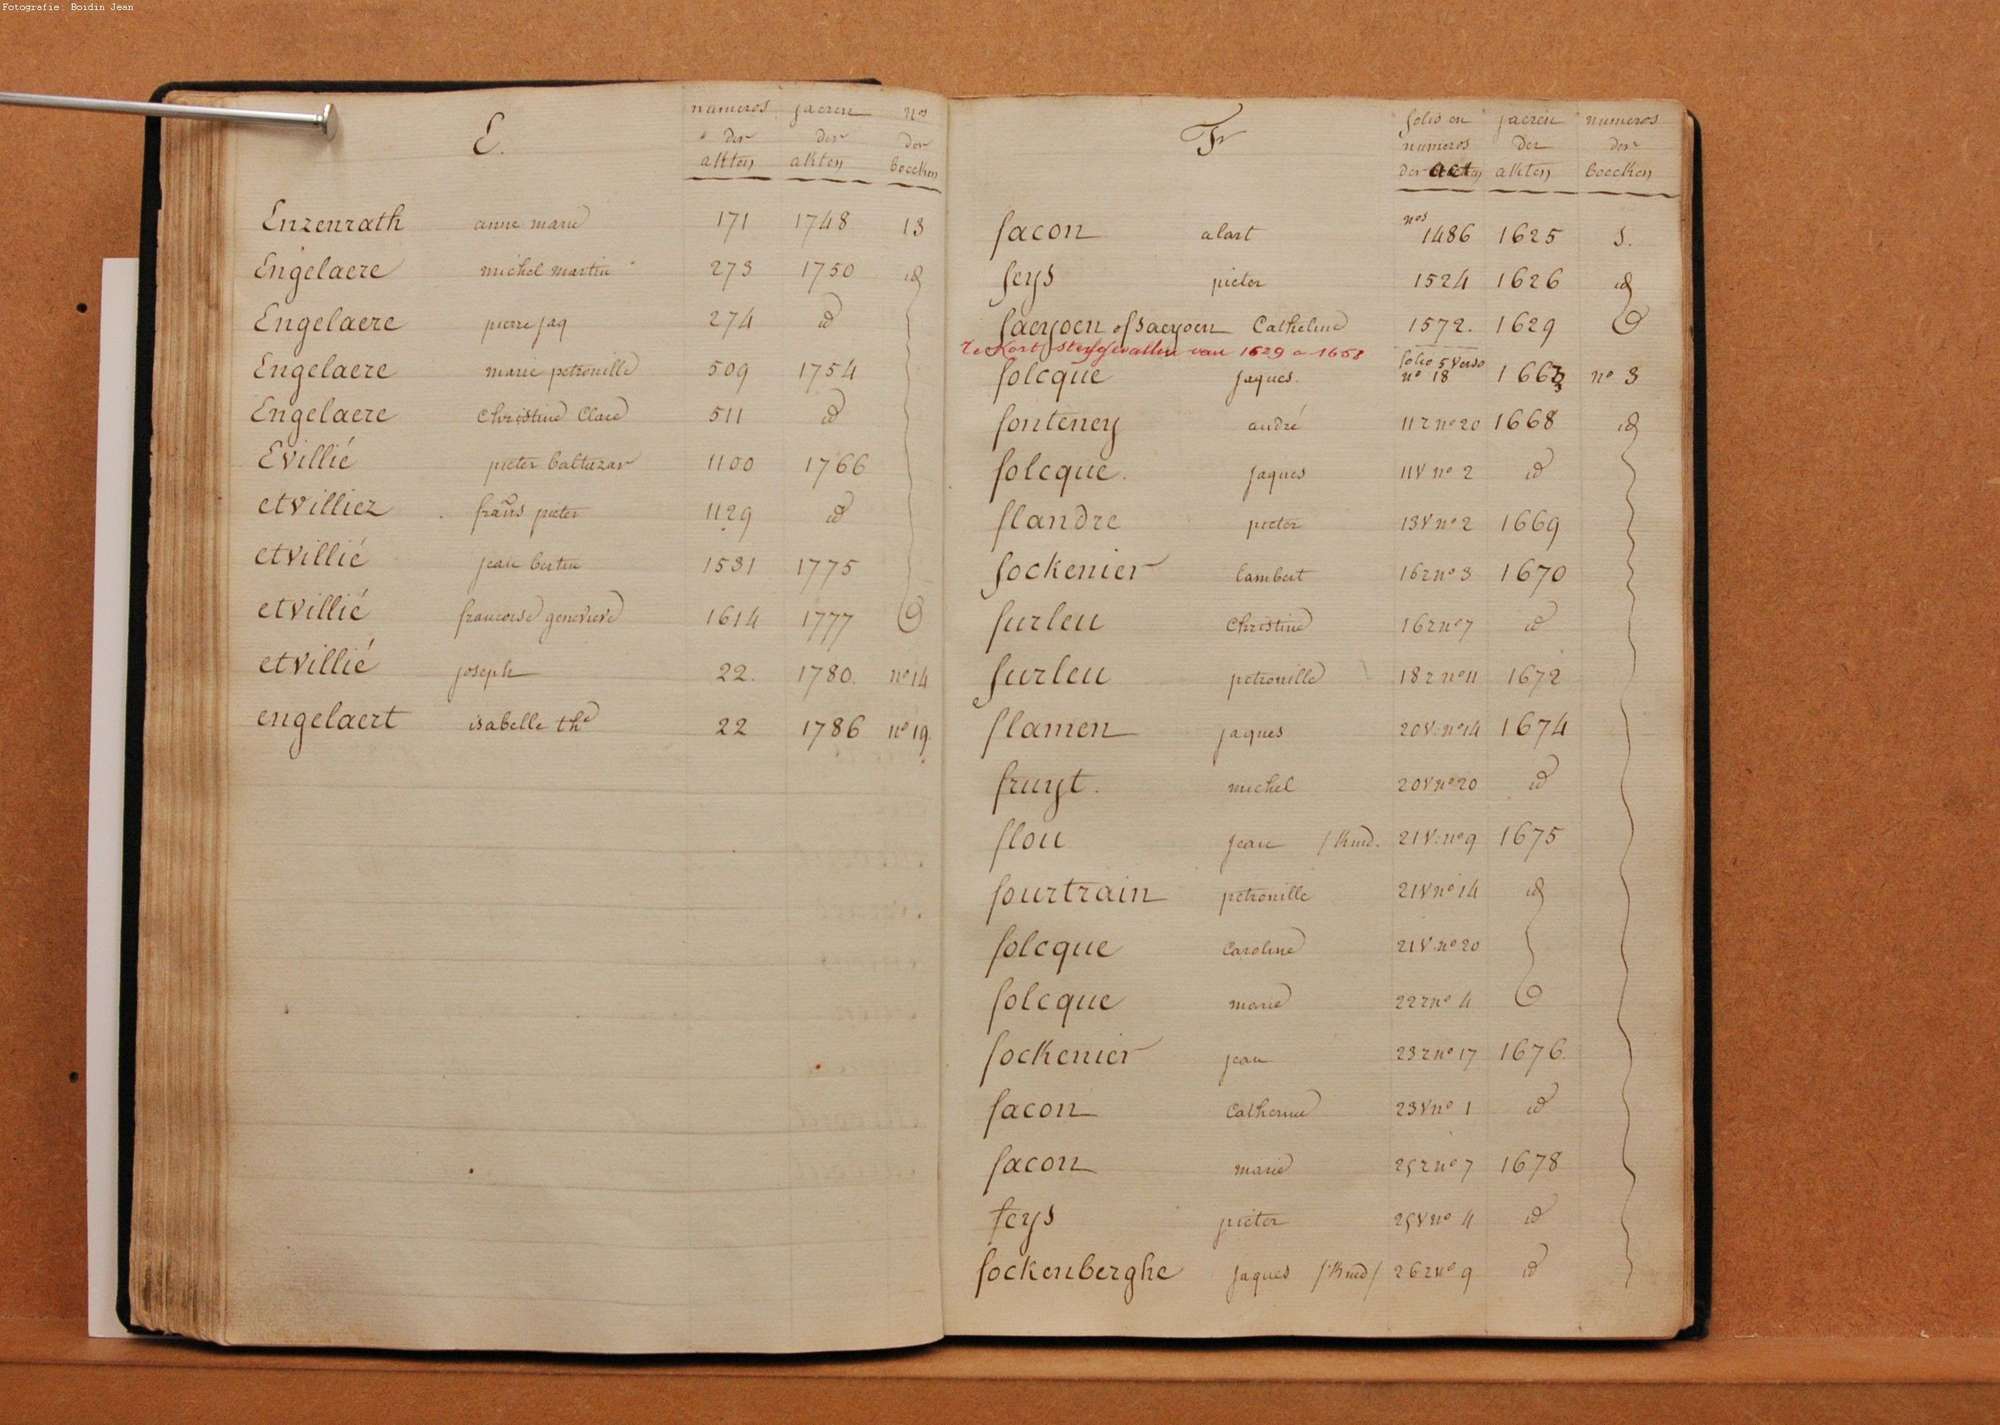 Fotografie: Boidin Jean
E. numeros der akten jaeren der akten nos der boecken
Enzenrath anne marie 171 1748 13
Engelaere michel martin 273 1750 id
Engelaere pierre jaq 274 id
Engelaere marie petronille 509 1754
Engelaere Christine Clare 511 id
Evillié pieter baltazar 1100 1766
etvilliez frans pieter 1129 id
etvillié jean bertin 1531 1775
etvillié francoise genevieve 1614 1777
etvillié joseph 22. 1780. no 14
engelaert isabelle the 22 1786 no 19
F folio en numeros der act jaeren der akten numeros der boecken
facon alart nos 1486 1625 s.
feys pieter 1524 1626 id
faeyoen of saeyoen Catheline 1572. 1629
Te Kort sterfgevallen van 1629 a 1658
folcque jaques. folio 5 verso no 18 1663 no 3
fonteney andré 11 r no 20 1668 id
folcque. jaques 11 v no 2 id
flandre pieter 13 v no 2 1669
fockenier lambert 16 r no 3 1670
furleu Christine 16 r no 7 id
furleu petronille 18 r no 11 1672
flamen jaques 20 v. no 14 1674
fruyt. michel 20 v no 20 id
flou jean / Kind. 21 v. no 9 1675
fourtrain petronille 21 v no 14 id
folcque Caroline 21 v. no 20
folcque marie 22 r no 4
fockenier jean 23 r no 17 1676.
facon Catherine 23 v no 1 id
facon marie 25 r no 7 1678
feys pieter 25 v no 4 id
fockenberghe jaques / Kind / 26 r no 9 id